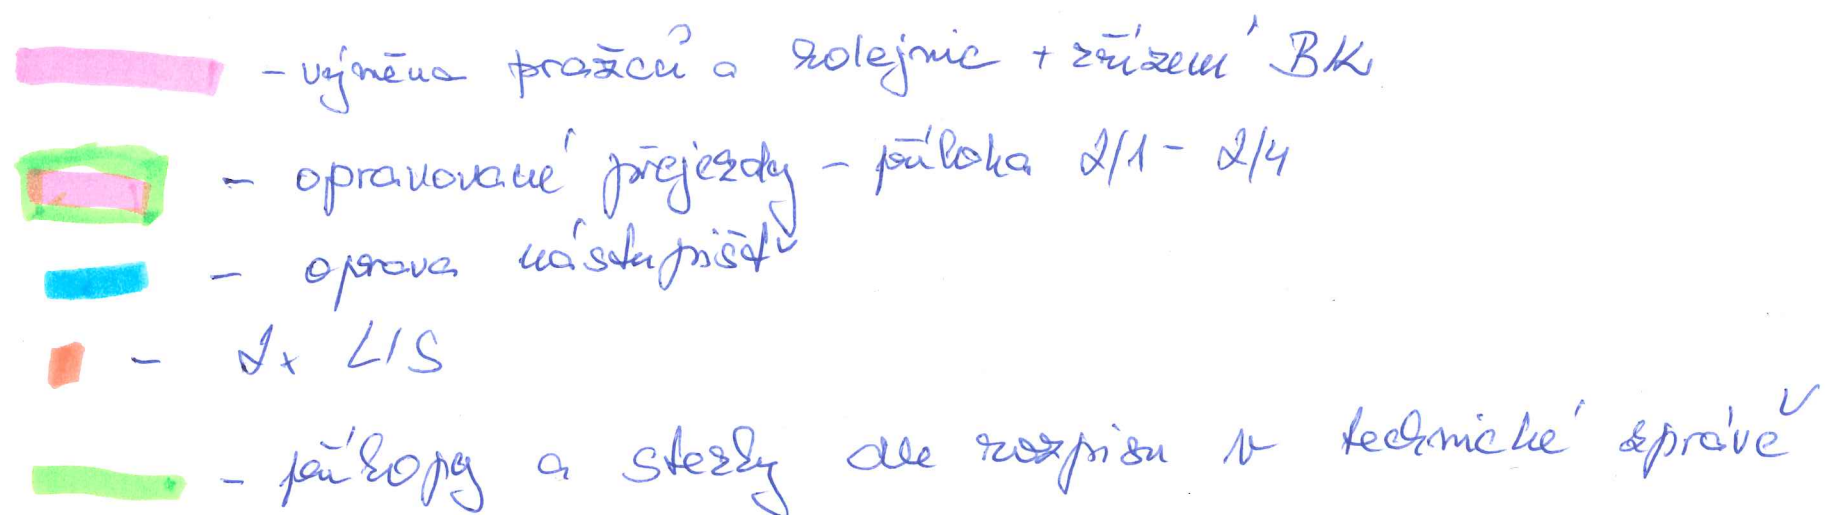 - výměna pražců a kolejnic + zřízení BK
- opravované přejezdy - příloha 2/1 - 2/4
- oprava nástupišť
- 2x LIS
- příkopy a stezky dle rozpisu v technické zprávě